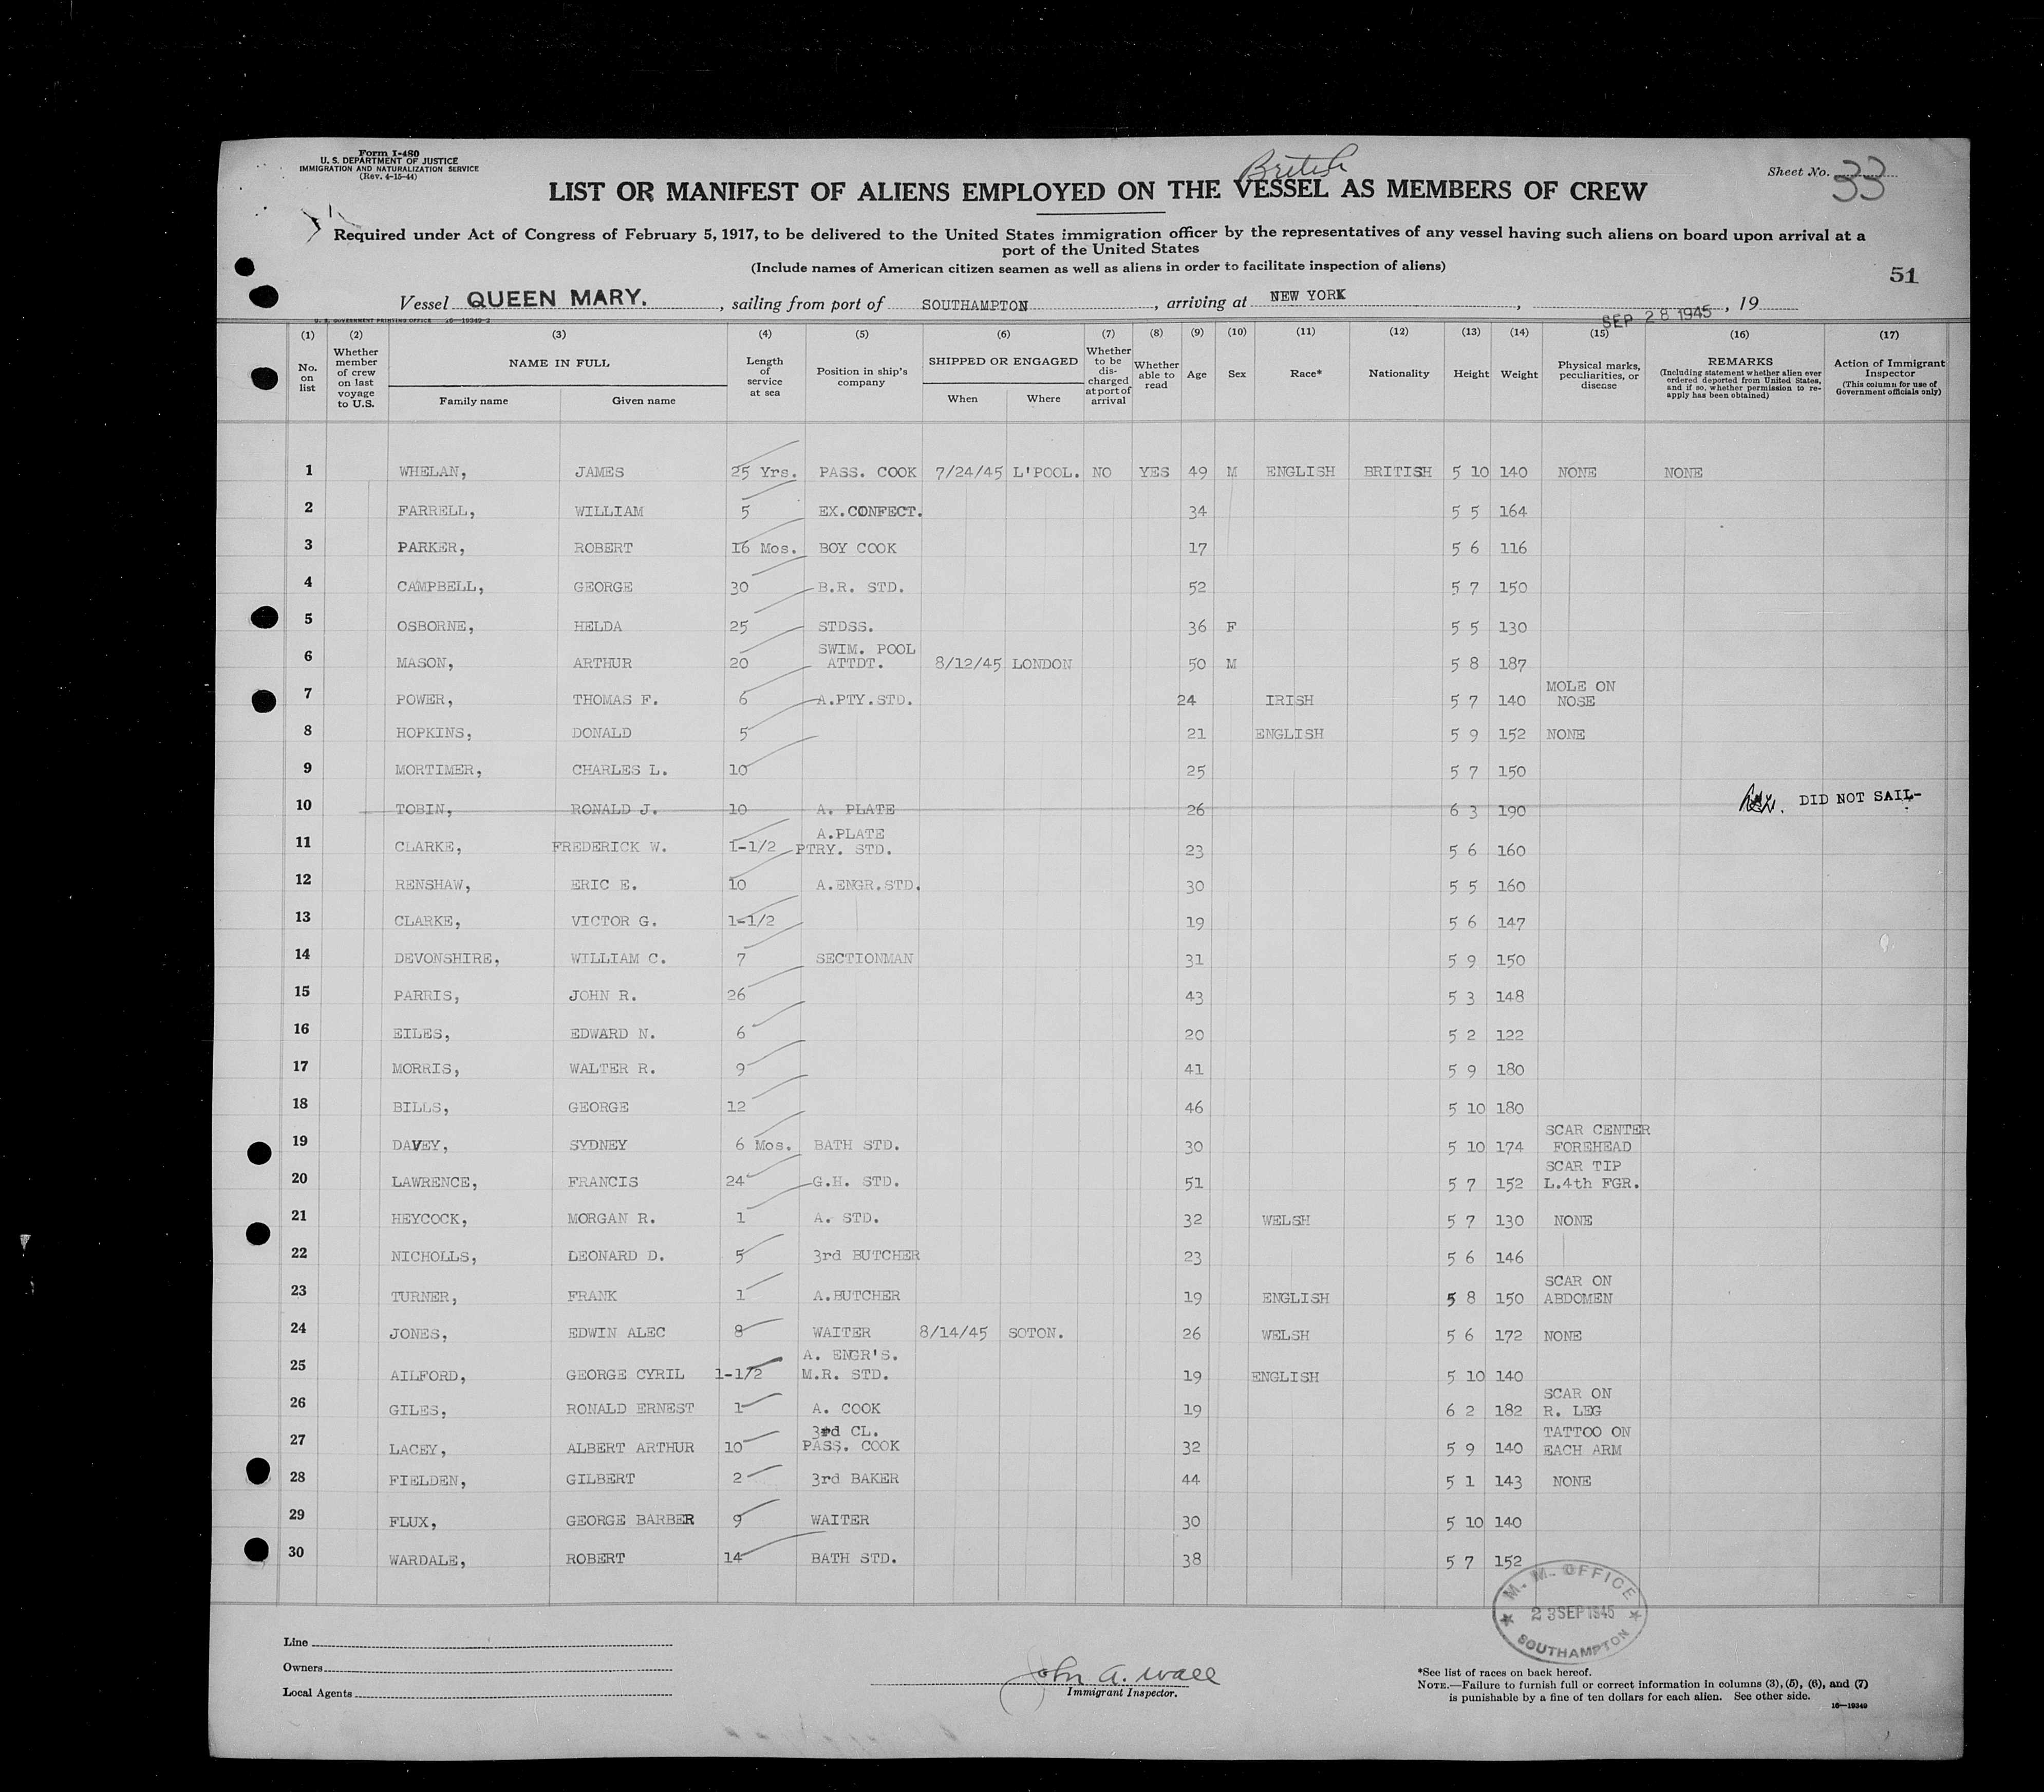 Form I-480
U. S. DEPARTMENT OF JUSTICE
IMMIGRATION AND NATURALIZATION SERVICE
(Rev. 4-15-44)
British
Sheet No. 33
LIST OR MANIFEST OF ALIENS EMPLOYED ON THE VESSEL AS MEMBERS OF CREW
Required under Act of Congress of February 5, 1917, to be delivered to the United States immigration officer by the representatives of any vessel having such aliens on board upon arrival at a
port of the United States
(Include names of American citizen seamen as well as aliens in order to facilitate inspection of aliens)
51
Vessel QUEEN MARY. , sailing from port of SOUTHAMPTON , arriving at NEW YORK , SEP 28 1945 , 19
U. S. GOVERNMENT PRINTING OFFICE 16—19349-2
(1) (2) (3) (4) (5) (6) (7) (8) (9) (10) (11) (12) (13) (14) (15) (16) (17)
No. on list
Whether member of crew on last voyage to U.S.
NAME IN FULL
Family name Given name
Length of service at sea
Position in ship's company
SHIPPED OR ENGAGED
When Where
Whether to be discharged at port of arrival
Whether able to read
Age
Sex
Race*
Nationality
Height
Weight
Physical marks, peculiarities, or disease
REMARKS
(Including statement whether alien ever ordered deported from United States, and if so, whether permission to re-apply has been obtained)
Action of Immigrant Inspector
(This column for use of Government officials only)
1 WHELAN, JAMES 25 Yrs. PASS. COOK 7/24/45 L'POOL. NO YES 49 M ENGLISH BRITISH 5 10 140 NONE NONE
2 FARRELL, WILLIAM 5 EX.CONFECT. 34 5 5 164
3 PARKER, ROBERT 16 Mos. BOY COOK 17 5 6 116
4 CAMPBELL, GEORGE 30 B.R. STD. 52 5 7 150
5 OSBORNE, HELDA 25 STDSS. 36 F 5 5 130
6 MASON, ARTHUR 20 SWIM. POOL ATTDT. 8/12/45 LONDON 50 M 5 8 187
7 POWER, THOMAS F. 6 A.PTY.STD. 24 IRISH 5 7 140 MOLE ON NOSE
8 HOPKINS, DONALD 5 21 ENGLISH 5 9 152 NONE
9 MORTIMER, CHARLES L. 10 25 5 7 150
10 TOBIN, RONALD J. 10 A. PLATE 26 6 3 190 DID NOT SAIL-
11 CLARKE, FREDERICK W. 1-1/2 A.PLATE PTRY. STD. 23 5 6 160
12 RENSHAW, ERIC E. 10 A.ENGR.STD. 30 5 5 160
13 CLARKE, VICTOR G. 1-1/2 19 5 6 147
14 DEVONSHIRE, WILLIAM C. 7 SECTIONMAN 31 5 9 150
15 PARRIS, JOHN R. 26 43 5 3 148
16 EILES, EDWARD N. 6 20 5 2 122
17 MORRIS, WALTER R. 9 41 5 9 180
18 BILLS, GEORGE 12 46 5 10 180
19 DAVEY, SYDNEY 6 Mos. BATH STD. 30 5 10 174 SCAR CENTER FOREHEAD
20 LAWRENCE, FRANCIS 24 G.H. STD. 51 5 7 152 SCAR TIP L.4th FGR.
21 HEYCOCK, MORGAN R. 1 A. STD. 32 WELSH 5 7 130 NONE
22 NICHOLLS, LEONARD D. 5 3rd BUTCHER 23 5 6 146
23 TURNER, FRANK 1 A.BUTCHER 19 ENGLISH 5 8 150 SCAR ON ABDOMEN
24 JONES, EDWIN ALEC 8 WAITER 8/14/45 SOTON. 26 WELSH 5 6 172 NONE
25 AILFORD, GEORGE CYRIL 1-1/2 A. ENGR'S. M.R. STD. 19 ENGLISH 5 10 140
26 GILES, RONALD ERNEST 1 A. COOK 19 6 2 182 SCAR ON R. LEG
27 LACEY, ALBERT ARTHUR 10 3rd CL. PASS. COOK 32 5 9 140 TATTOO ON EACH ARM
28 FIELDEN, GILBERT 2 3rd BAKER 44 5 1 143 NONE
29 FLUX, GEORGE BARBER 9 WAITER 30 5 10 140
30 WARDALE, ROBERT 14 BATH STD. 38 5 7 152
M. M. OFFICE
23 SEP 1945
SOUTHAMPTON
Line
Owners
Local Agents
John A. Wall
Immigrant Inspector.
*See list of races on back hereof.
NOTE.—Failure to furnish full or correct information in columns (3), (5), (6), and (7)
is punishable by a fine of ten dollars for each alien. See other side.
16—19349